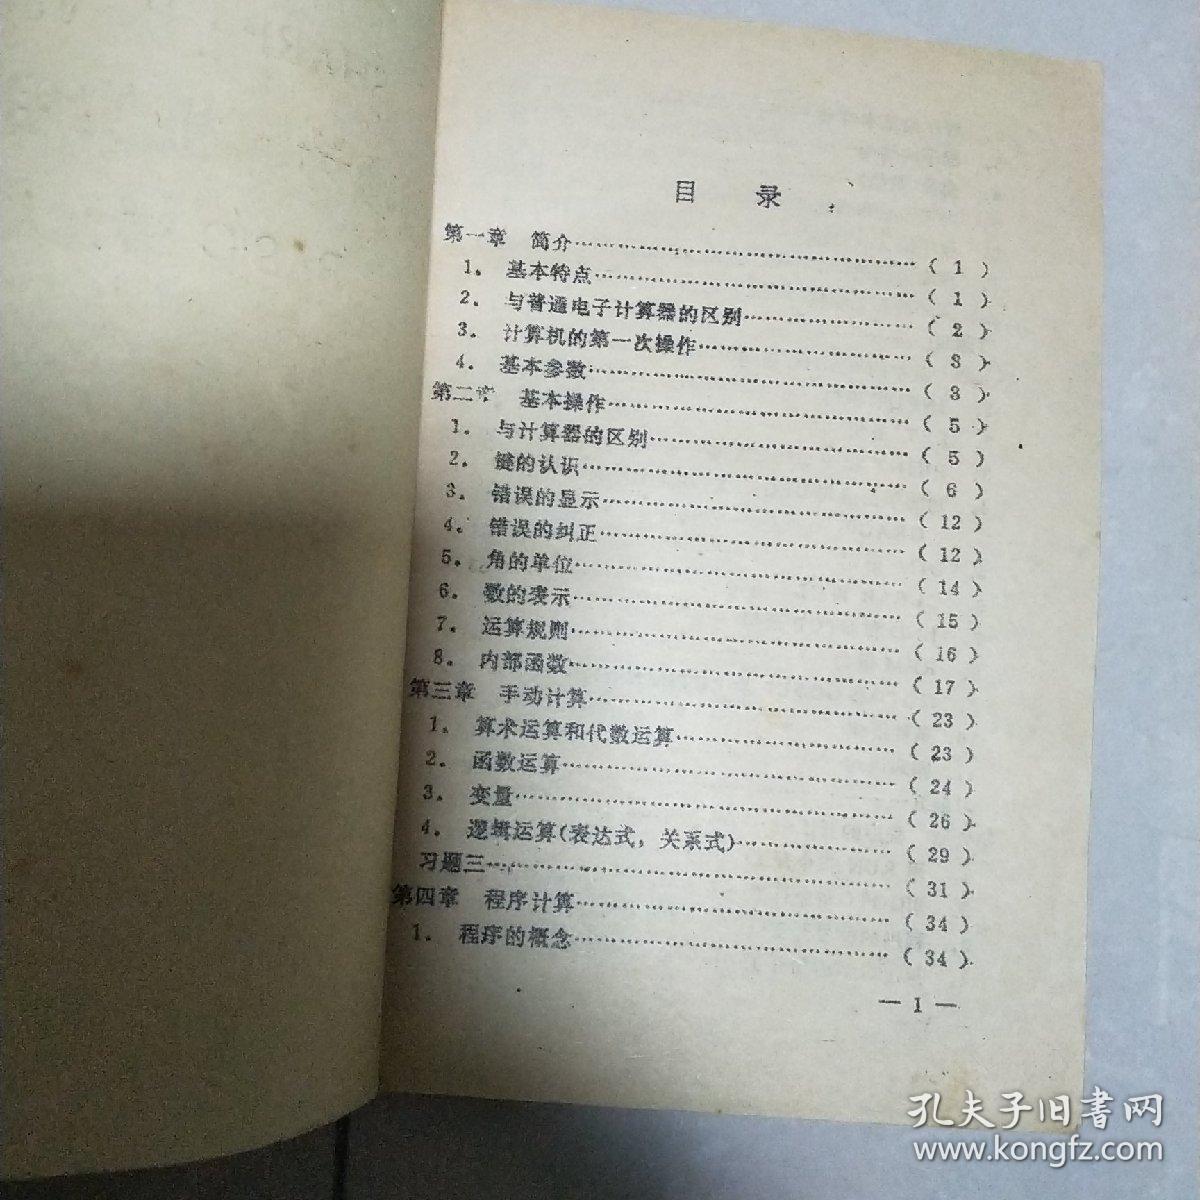 目 录
第一章 简介……………………………………( 1 )
1. 基本特点……………………………………( 1 )
2. 与普通电子计算器的区别……………………( 2 )
3. 计算机的第一次操作…………………………( 3 )
4. 基本参数……………………………………( 3 )
第二章 基本操作………………………………( 5 )
1. 与计算器的区别………………………………( 5 )
2. 键的认识……………………………………( 6 )
3. 错误的显示…………………………………( 12 )
4. 错误的纠正…………………………………( 12 )
5. 角的单位……………………………………( 14 )
6. 数的表示……………………………………( 15 )
7. 运算规则……………………………………( 16 )
8. 内部函数……………………………………( 17 )
第三章 手动计算………………………………( 23 )
1. 算术运算和代数运算…………………………( 23 )
2. 函数运算……………………………………( 24 )
3. 变量…………………………………………( 26 )
4. 逻辑运算(表达式，关系式)…………………( 29 )
习题三…………………………………………( 31 )
第四章 程序计算………………………………( 34 )
1. 程序的概念…………………………………( 34 )
— 1 —
孔夫子旧书网
www.kongfz.com